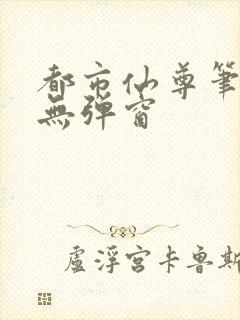 都市仙尊筆
無彈窗
盧浮宮卡魯斯